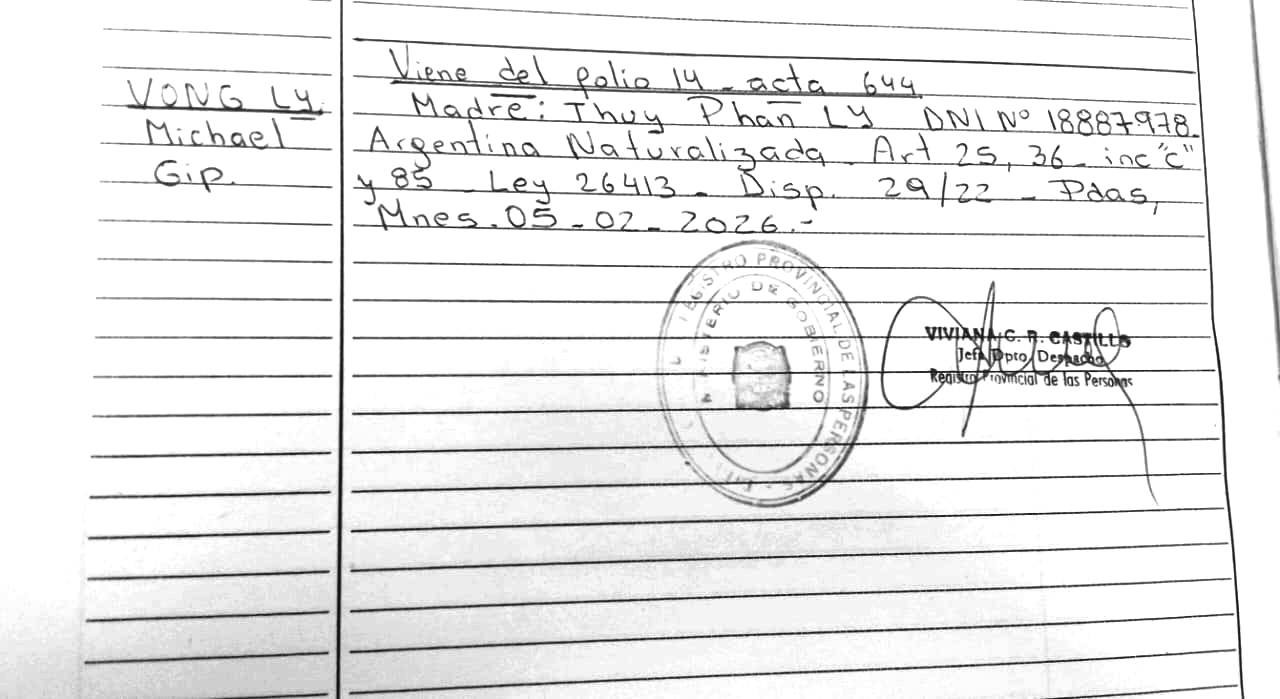 Viene del folio 14 - acta 644
VONG LY
Michael
Gip.
Madre: Thuy Phan LY DNI Nº 18887978.
Argentina Naturalizada. Art 25, 36 - inc "c"
y 85 - Ley 26413 - Disp. 29/22 - Pdas,
Mnes. 05-02-2026.-
REGISTRO PROVINCIAL DE LAS PERSONAS
MINISTERIO DE GOBIERNO
VIVIANA C. R. CASTILLO
Jefa Dpto Despacho
Registro Provincial de las Personas